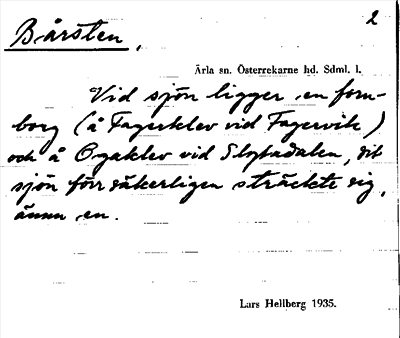 Bårsten, 2
Ärla sn. Österrekarne hd. Sdml. l.
Vid sjön ligger en forn-
borg (å Fagerklev vid Fagervik)
och å Ögaklev vid Slytadalen, dit
sjön förr säkerligen sträckte sig,
ännu en.
Lars Hellberg 1935.